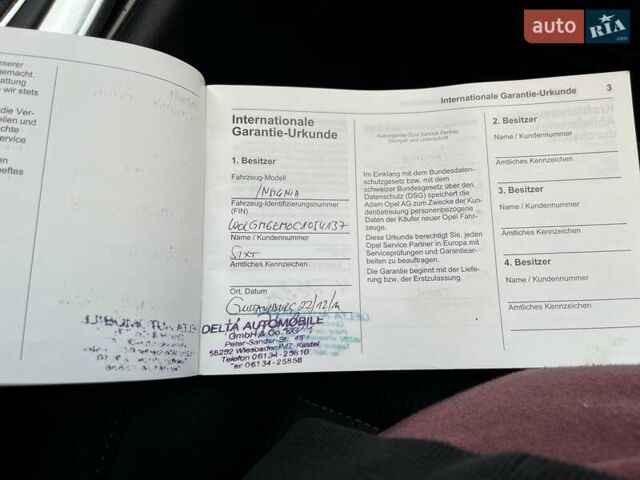 auto RIA.com
serer
emacht.
attung
wir stets
die Ver-
eilen und
chte
ervice
en
eftes
Internationale Garantie-Urkunde 3
Internationale
Garantie-Urkunde
1. Besitzer
Fahrzeug-Modell
INSIGNIA
Fahrzeug-Identifizierungsnummer
(FIN)
Name / Kundennummer
SIXT
Amtliches Kennzeichen
Ort, Datum
Gustavsburg 22/12/12
DELTA AUTOMOBILE
GmbH & Co. KG
Peter-Sander-Str. 45
55252 Wiesbaden/MZ-Kastel
Telefon 06134-25810
Fax 06134-25856
Autorisierter Opel Service Partner
Stempel und Unterschrift
Im Einklang mit dem Bundesdaten-
schutzgesetz bzw. mit dem
schweizer Bundesgesetz über den
Datenschutz (DSG) speichert die
Adam Opel AG zum Zwecke der Kun-
denbetreuung personenbezogene
Daten der Käufer neuer Opel Fahr-
zeuge.
Diese Urkunde berechtigt Sie, jeden
Opel Service Partner in Europa mit
Serviceprüfungen und Garantiear-
beiten zu beauftragen.
Die Garantie beginnt mit der Liefe-
rung bzw. der Erstzulassung.
2. Besitzer
Name / Kundennummer
Amtliches Kennzeichen
3. Besitzer
Name / Kundennummer
Amtliches Kennzeichen
4. Besitzer
Name / Kundennummer
Amtliches Kennzeichen